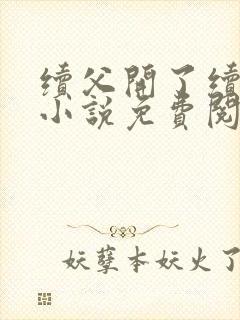 續父開了續
小說免費閱
妖孽本妖火了